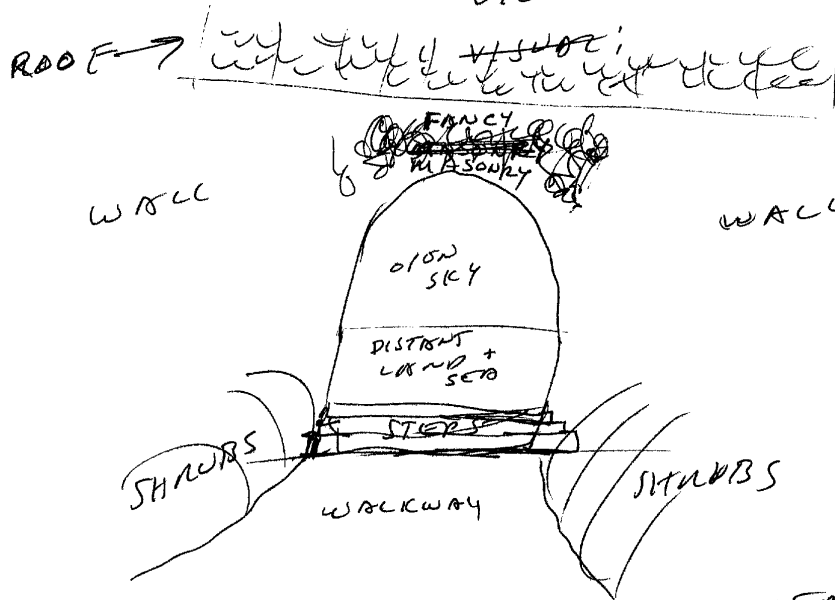 ROOF
VISUAL:
FANCY
MASONRY
MASONRY
WALL
WALL
OPEN
SKY
DISTANT
LAND +
SEA
STEPS
SHRUBS
SHRUBS
WALKWAY